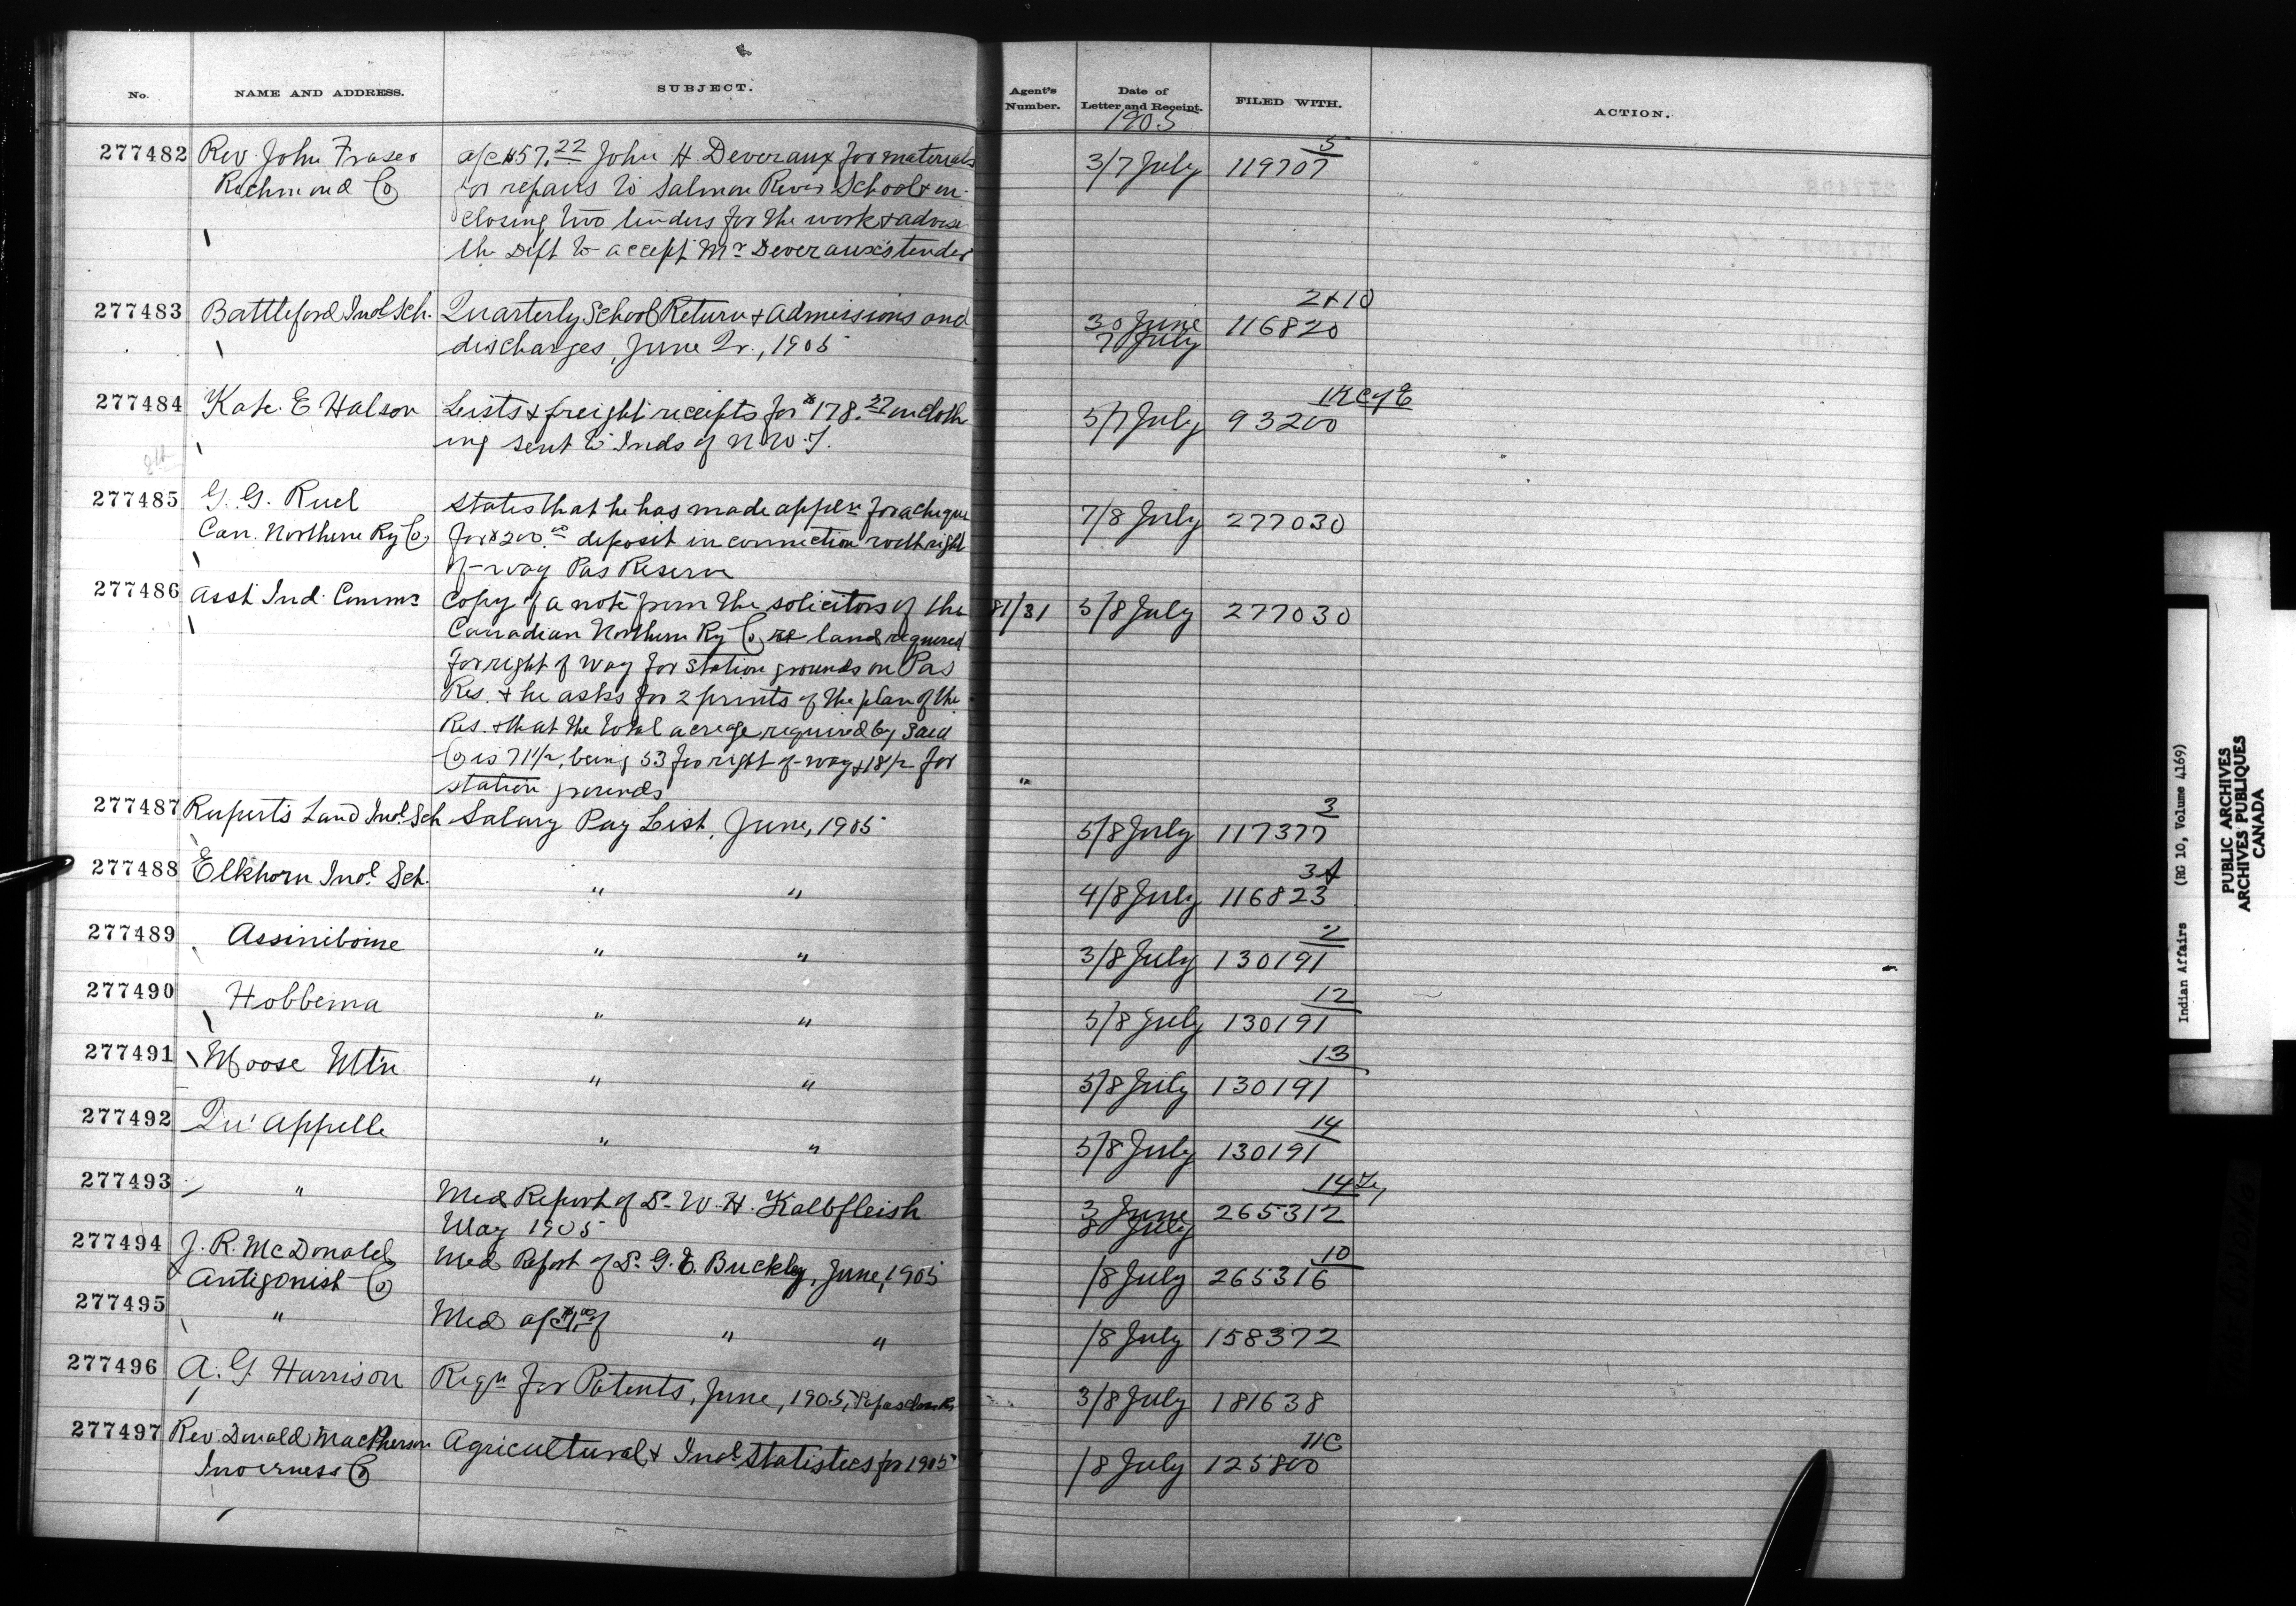 No. NAME AND ADDRESS. SUBJECT. Agent's Number. Date of Letter and Receipt. FILED WITH. ACTION.
1905
277482 Rev. John Fraser a/c $57.22 John H. Deveraux for materials 3/7 July 119707 5
Richmond Co for repairs to Salmon River School & en-
closing two tenders for the work & advise
the Dept to accept Mr Deveraux's tender
277483 Battleford Indl Sch. Quarterly School Return & Admissions and 30 June 7 July 116820 2+10
discharges, June Qr., 1905
277484 Kate E Halson Lists & freight receipts for $178.37 on cloth 5/7 July 93200
ing sent to Inds of N.W.T.
8th
277485 G. G. Ruel States that he has made appln for a cheque 7/8 July 277030
Can. Northern Ry Co, for $200.00 deposit in connection with right
of-way Pas Reserve
277486 Asst Ind. Commr Copy of a note from the solicitors of the 81/31 5/8 July 277030
Canadian Northern Ry Co, re land required
for right of way for station grounds on Pas
Res. & he asks for 2 prints of the plan of the
Res. & that the total acreage required by said
Co is 71 1/2, being 53 for right of-way & 18 1/2 for
station grounds
277487 Rupert's Land Indl. Sch Salary Pay List, June, 1905 5/8 July 117377 3
277488 Elkhorn Indl. Sch. " " 4/8 July 116823 3A
277489 Assiniboine " " 3/8 July 130191 2
277490 Hobbema " " 5/8 July 130191 12
277491 Moose Mt'n " " 5/8 July 130191 13
277492 Qu'Appelle " " 5/8 July 130191 14
277493 " Med Report of Dr. W. H. Kalbfleish 3 June 8 July 265312 14
May 1905
277494 J. R. McDonald Med Report of Dr. G. E. Buckley, June, 1905 /8 July 265316 10
Antigonist Co
277495 " Med a/c of " " /8 July 158372
277496 A. G. Harrison Regn for Patents, June, 1905, 3/8 July 181638
277497 Rev. Donald MacPherson Agricultural & Indl Statistics for 1905 /8 July 125800 11C
Inverness Co
Indian Affairs (RG 10, Volume 4169)
PUBLIC ARCHIVES
ARCHIVES PUBLIQUES
CANADA